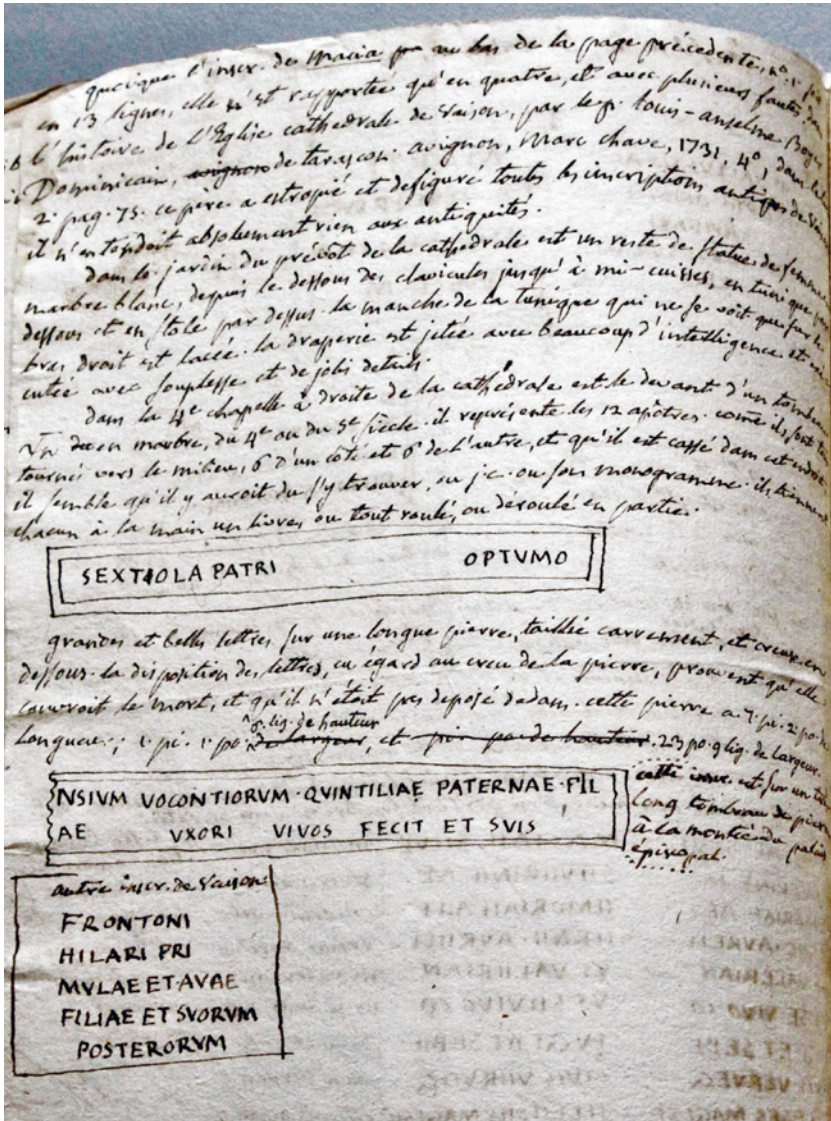 quoique l'inscr. de Macia au bas de la page précedente, n.° 1.
en 13 lignes, elle n'est rapportée qu'en quatre, et avec plusieurs fautes, dans
l'histoire de l'Eglise cathedrale de Vaison, par le p. louis-anselme Boyer
Dominicain, avignon de tarascon. avignon, Marc chave, 1731, 4°, dans
2. pag. 75. ce père a estropié et defiguré toutes les inscriptions antiques de Vaison
il n'entendoit absolument rien aux antiquités.
dans le jardin du prévôt de la cathédrale est un reste de statue de femme
marbre blanc, depuis le dessous des clavicules jusqu'à mi-cuisses, en tunique par
dessous et en stole par dessus. la manche de la tunique qui ne se voit que sur le
bras droit est lacée. la draperie est jetée avec beaucoup d'intelligence et
cutée avec souplesse et de jolis details.
dans la 4e chapelle à droite de la cathédrale est le devant d'un tombeau
en marbre, du 4e ou du 5e siècle. il représente les 12 apôtres. come ils sont
tournés vers le milieu, 6 d'un coté et 6 de l'autre, et qu'il est cassé dans cet endroit
il semble qu'il y auroit du s'y trouver, ou j.c. ou son monogramme. ils tiennent
chacun à la main un livre, ou tout roulé, ou déroulé en partie.
SEXTIOLA PATRI OPTVMO
grandes et belles lettres sur une longue pierre, taillée carrement, et creuse en
dessous. la disposition des lettres, eu égard au creu de la pierre, prouvent qu'elle
couvroit le mort, et qu'il n'étoit pas deposé dedans. cette pierre a 7. pi. 2. po. de
longueur; 1. pi. 1. po. 8. lig. de hauteur de largeur, et po. de hauteur. 23 po. 9 lig. de largeur.
NSIVM VOCONTIORVM · QVINTILIAE PATERNAE · FIL
AE VXORI VIVOS FECIT ET SVIS
cette inscr. est sur un très
long tombeau de pierre
à la montée du palais
épiscopal.
autre inscr. de Vaison
FRONTONI
HILARI PRI
MVLAE ET AVAE
FILIAE ET SVORVM
POSTERORVM